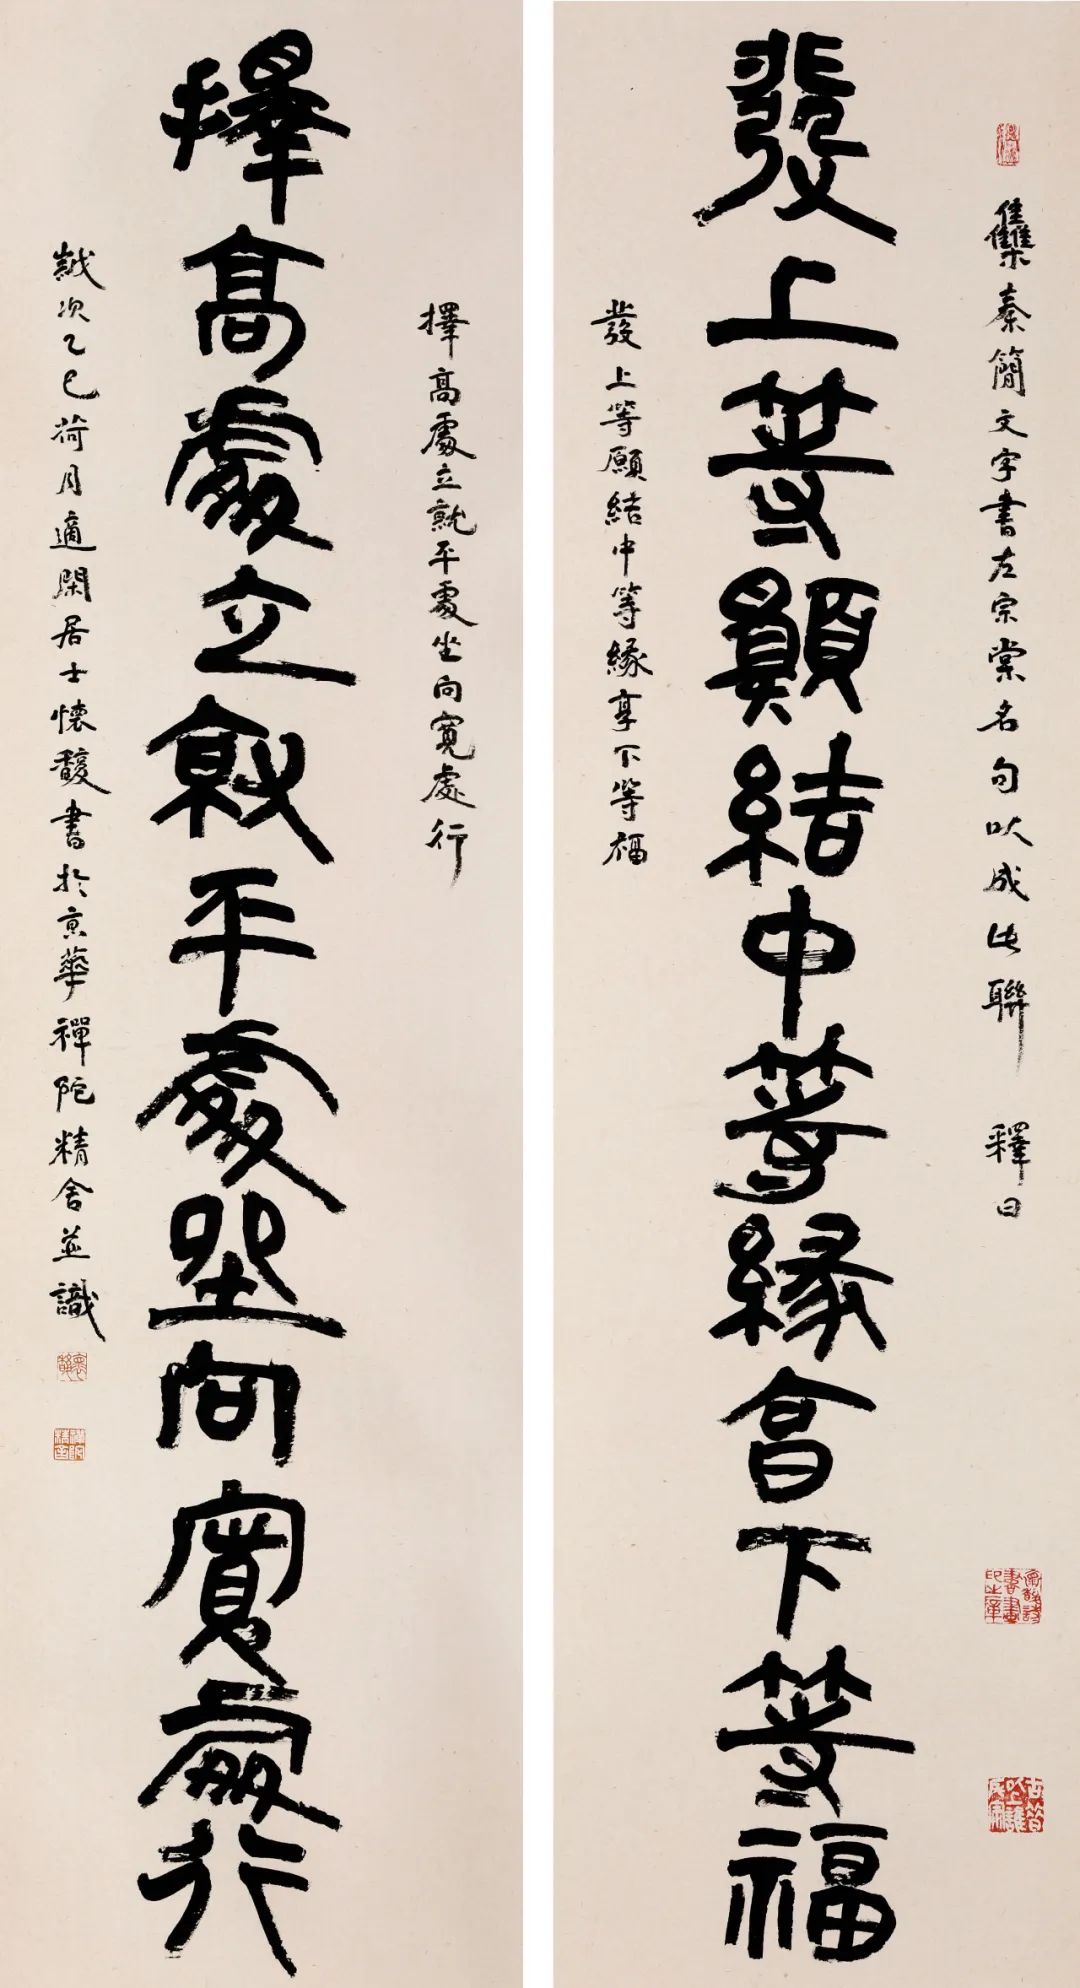 集秦簡文字書左宗棠名句以成此聯 釋曰
發上等願結中等緣享下等福
發上等願結中等緣享下等福
擇高處立就平處坐向寬處行
擇高處立就平處坐向寬處行
歲次乙巳荷月適閑居士懷馥書於京華禪陀精舍並識